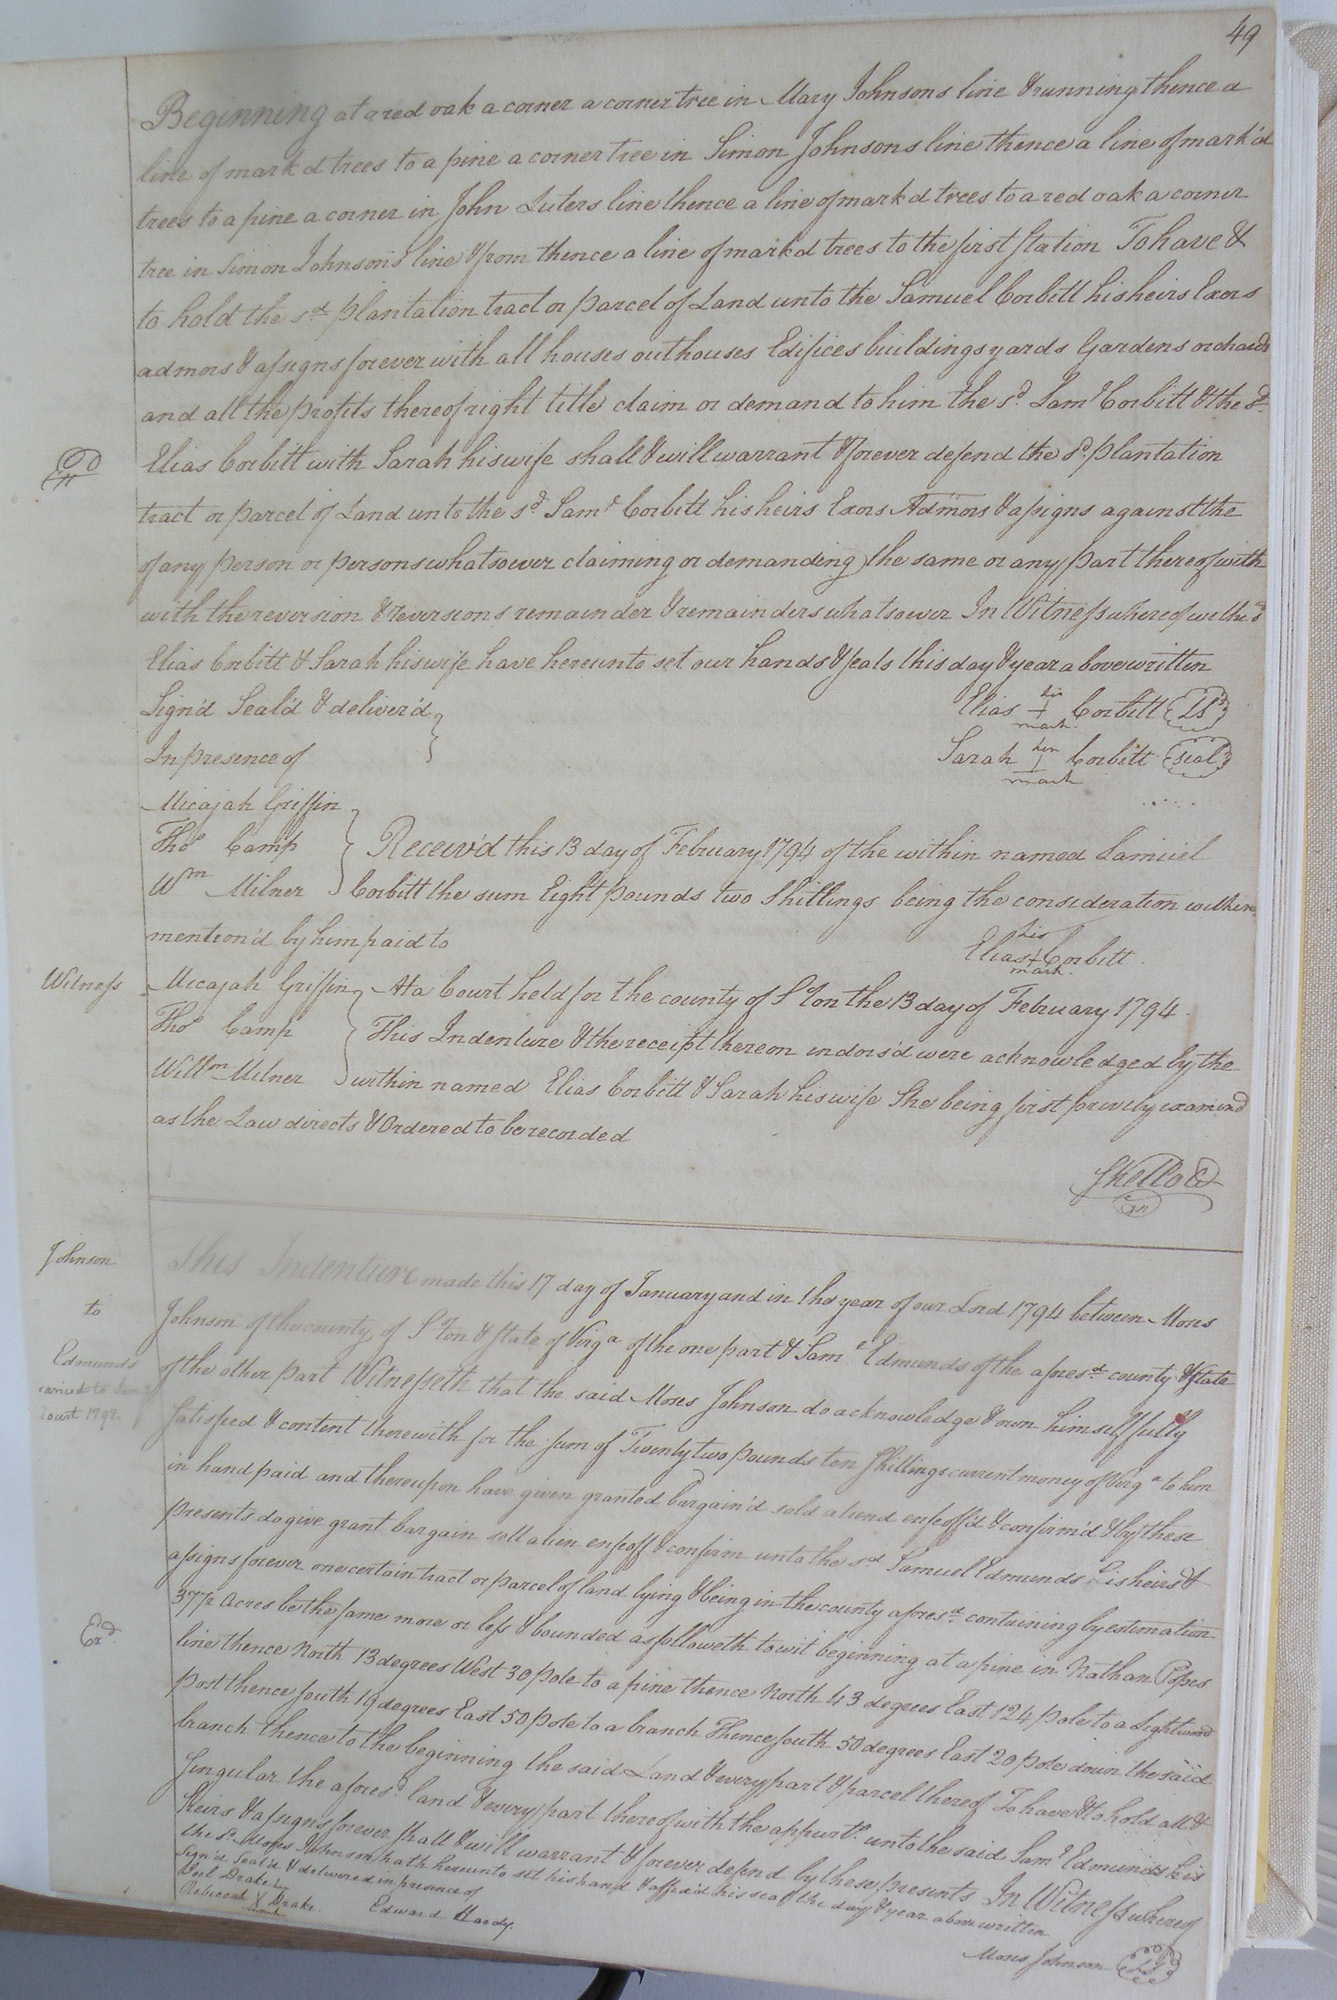 49
Beginning at a red oak a corner a corner tree in Mary Johnsons line & running thence a
line of mark'd trees to a pine a corner tree in Simon Johnsons line thence a line of mark'd
trees to a pine a corner in John Luters line thence a line of mark'd trees to a red oak a corner
tree in Simon Johnson's line & from thence a line of mark'd trees to the first station To have &
to hold the sd. plantation tract or parcel of Land unto the Samuel Corbitt his heirs Exors
admors & assigns forever with all houses outhouses Edifices buildings yards Gardens orchards
and all the profits thereof right title claim or demand to him the sd. Saml. Corbitt & the sd.
Elias Corbitt with Sarah his wife shall & will warrant & forever defend the sd. plantation
tract or parcel of Land unto the sd. Saml. Corbitt his heirs Exors Admors & assigns against the
of any person or persons whatsoever claiming or demanding the same or any part thereof with
with the reversion & reversions remainder & remainders whatsoever In Witness whereof we the sd.
Elias Corbitt & Sarah his wife have hereunto set our hands & seals this day & year above written
Sign'd Seal'd & deliver'd
In presence of
Elias his + mark Corbitt LS
Sarah her mark Corbitt seal
Micajah Griffin
Thos. Camp
Wm Milner
Receiv'd this 13 day of February 1794 of the within named Samuel
Corbitt the sum Eight pounds two Shillings being the consideration within
mention'd by him paid to
Elias his + mark Corbitt
Witness
Micajah Griffin
Thos. Camp
Willm Milner
At a Court held for the county of Sºton the 13 day of February 1794
This Indenture & the receipt thereon indors'd were acknowledged by the
within named Elias Corbitt & Sarah his wife She being first privily examined
as the Law directs & Ordered to be recorded
Johnson
to
Edmunds
This Indenture made this 17 day of January and in the year of our Lord 1794 between Moses
Johnson of the county of Sºton & state of Virga of the one part & Saml. Edmunds of the aforesd. county & state
of the other part Witnesseth that the said Moses Johnson do acknowledge & own himself fully
satisfied & content therewith for the sum of Twenty two pounds ten Shillings current money of Virga to him
in hand paid and thereupon have given granted bargain'd sold aliend enfeoff'd & confirm'd & by these
presents do give grant bargain sell alien enfeoff & confirm unto the sd. Samuel Edmunds his heirs &
assigns forever one certain tract or parcel of land lying & being in the county aforesd. containing by estimation
37½ Acres be the same more or less & bounded as followeth towit beginning at a pine in Nathan Popes
line thence North 13 degrees West 30 pole to a pine thence North 43 degrees East 124 pole to a Lightwood
post thence south 19 degrees East 50 pole to a branch Thence south 50 degrees East 20 pole down the said
branch thence to the beginning the said Land & every part & parcel thereof To have & to hold all &
singular the aforesd. land & every part thereof with the appurts. unto the said Saml. Edmunds his
heirs & assigns forever shall & will warrant & forever defend by these presents In Witness whereof
the sd. Moses Johnson hath hereunto set his hand & affix'd his seal the day & year above written
Sign'd Seal'd & delivered in presence of
Drake
Rebeccah X Drake
mark
Edward Hardy.
Moses Johnson LS